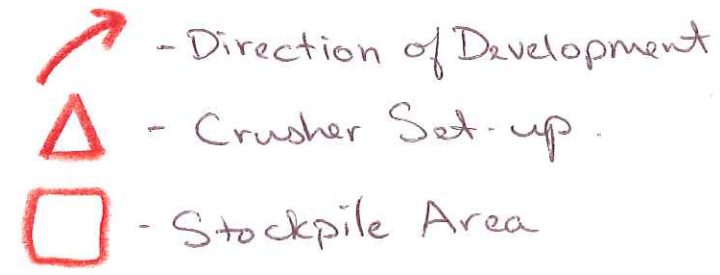 - Direction of Development
- Crusher Set-up.
- Stockpile Area